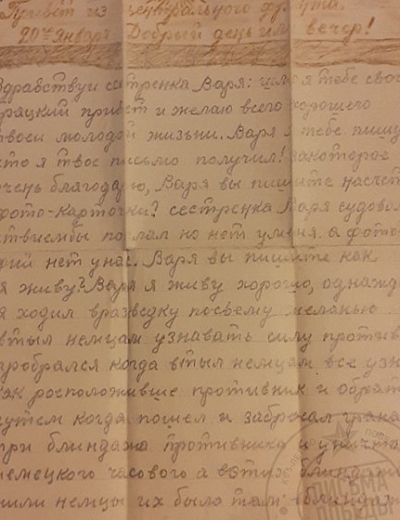 Привет из центрального фронта.
20го января Добрый день или вечер!
Здравствуй сестренка Варя: шлю я тебе свой
братский привет и желаю всего хорошего
твоей молодой жизьни. Варя я тебе пишу
что я твое письмо получил! закоторое
очень благодарю, Варя вы пишите насчет
фото-карточки? сестренка Варя судоволь
ствиембы послал но нет уменя. а фото
фий нет унас. Варя вы пишите как
я живу? Варя я живу хорошо, однажды
я ходил вразведку посвему желанью
втыл немцам узнавать силу против
пробрался когда втыл немцам все узн
как росположивше противник и обрат
путем когда пошел и забросал грана
три блиндажа противника и уничто
немецкого часового а вэтих блинда
жили немцы их было там
ПИСЬМА
ПОБЕДЫ